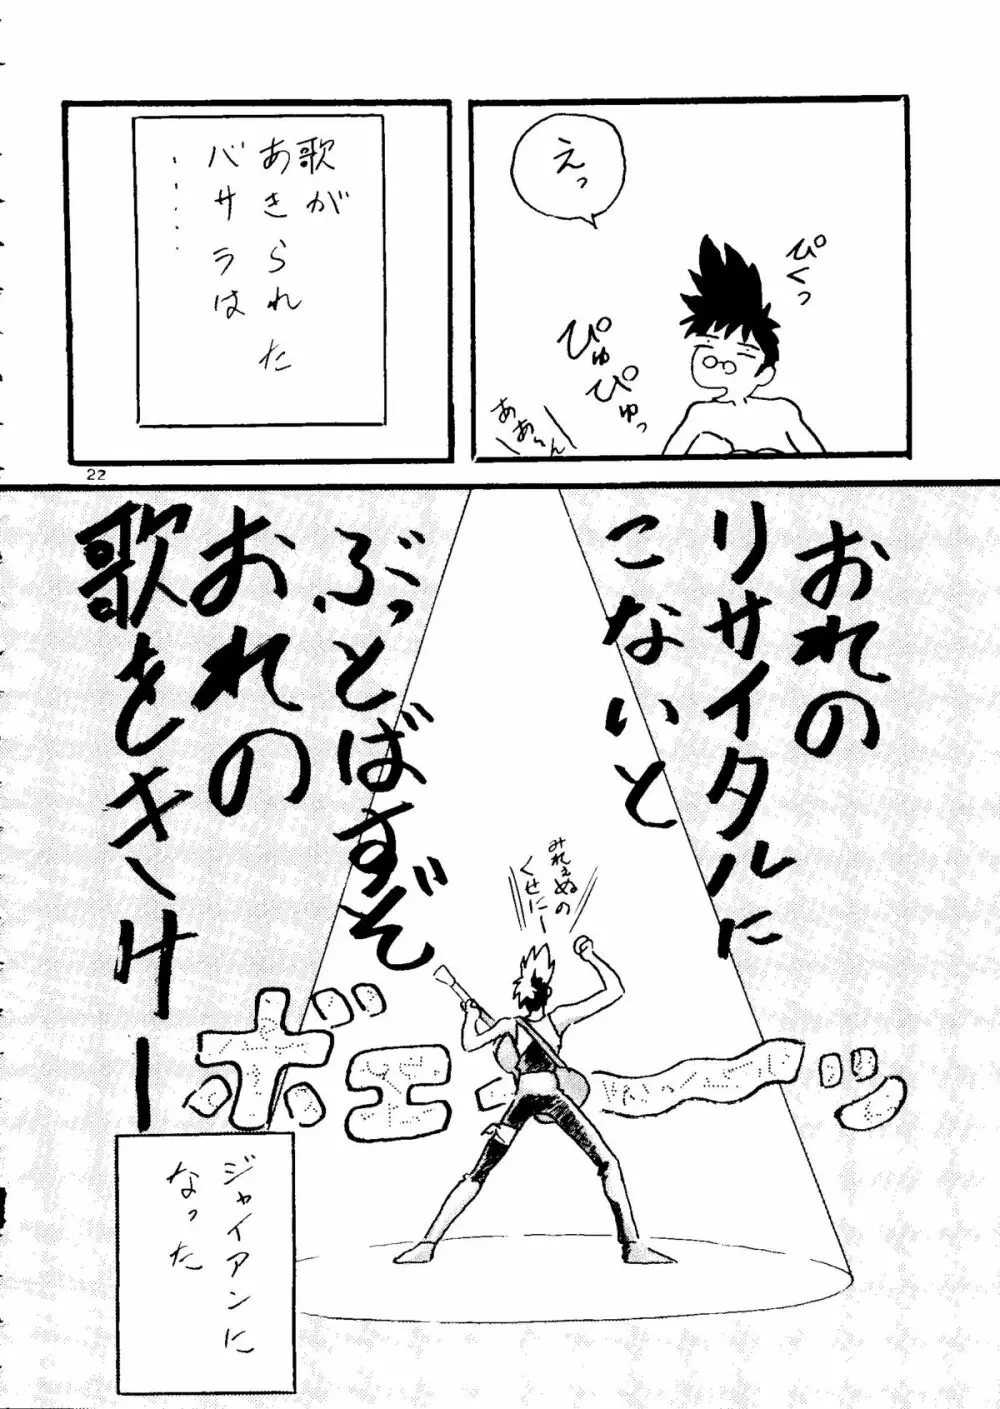 えっ
ぴくっ
ぴゅ
ぴゅっ
ああぃん
歌が
あきられた
バサラは
・・・・・
22
おれの
リサイタルに
こないと
ぶっとばすぞ
おれの
歌をきけー
みれぇぬの
くせにー
ボエ〜ッ
ジャイアンに
なった